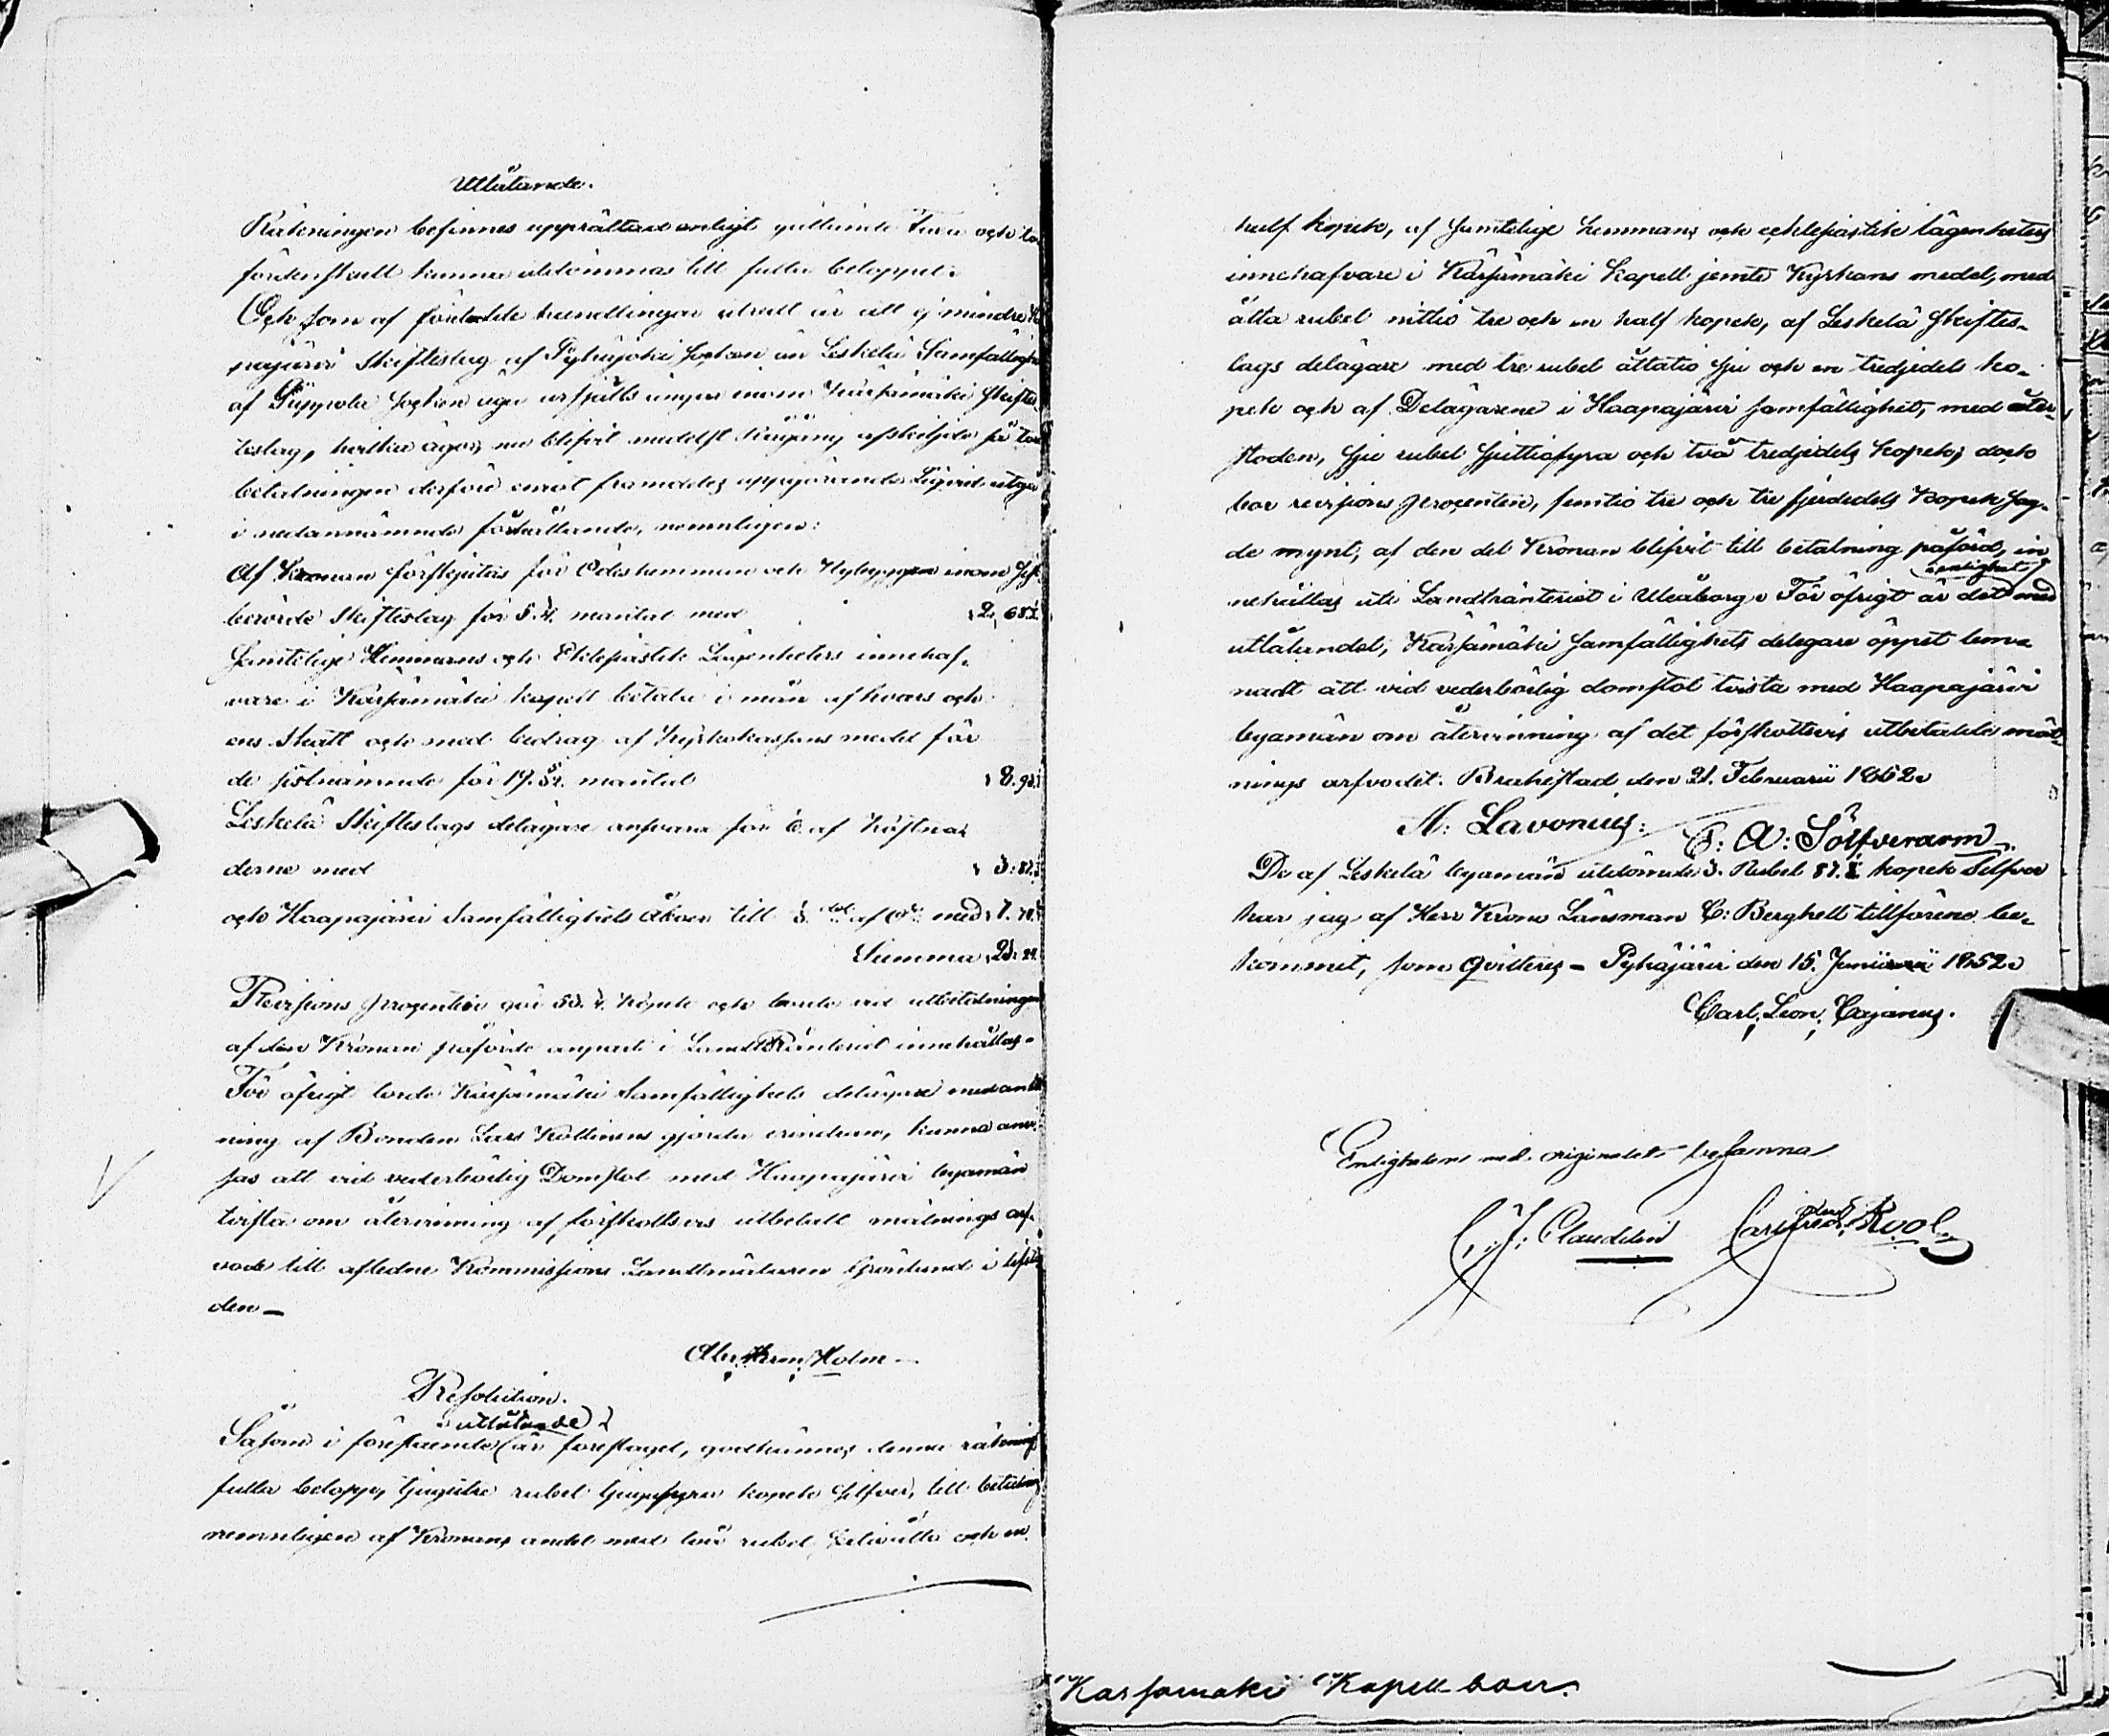 Utlåtande.
Räkningen befinnes upprättad enligt gällande taxa och
fördenskull kunna utdömmas till fulla beloppet.
Och som af förelade handlingar utrett är att ej mindre
pajärvi Skifteslag af Pyhäjoki Socken än Leskelä Samfällighet
af Piippola Socken äga urfjälls ängar inom Kärsämäki Skiftes
teslag, hvilka ägor nu blifvit medelst rågång afskiljde så torde
betalningen derföre emot framdeles uppgörande Liqvid utgå
i nedannämnde förhållande, nemnligen:
Af Kronan förskjutes för Ödeshemman och Nybyggen inom sist
berörde Skifteslag för 5.¾. mantal med 2, 68.½
Samtelige Hemmans och Eklesiastik Lägenheters innehaf-
vare i Kärsämäki kapell betala i mån af hvars och
ens skatt och med bidrag af Kyrkokassans medel för
de sistnämnde för 19. mantal 8. 93.½
Leskelä Skifteslags delägare ansvara för ⅙ af kostna-
derne med 3: 87.⅓
och Haapajärvi Samfällighets åboer till ⅓ del af Do med 7. 74.⅔
Summa 23: 24.
Revisions procenten gör 53.¾. kopek och borde vid utbetalningen
af den Kronan påförde anpart i Landtränteriet innehållas.
För öfrigt torde Kärsämäki Samfällighets delägare med anled
ning af Bonden Lars Kottinens gjorda erindran, kunna anvi-
sas att vid vederbörlig Domstol med Haapajärvi byamän
tvista om återvinning af förskottsvis utbetalt mätnings arf-
vode till aflidne Kommissions Landtmätaren Grönlund i lifsti
den —
Abr. Herm. Holm —
Resolution.
utlåtande
Såsom i förestående är föreslaget, godkännes denna räkning
fulla belopp, tjugutre rubel tjugufyra kopek Silfver, till betalning
nemnligen af Kronans andel med två rubel sextioåtta och en
half kopek, af samtelige hemmans och ecklesiastik lägenheters
innehafvare i Kärsämäki Kapell jemte Kyrkans medel, med
åtta rubel nittio tre och en half kopek, af Leskelä skiftes-
lags delägare med tre rubel åttatio sju och en tredjedels ko-
pek och af Delägarene i Haapajärvi samfällighet, med åter-
stoden, sju rubel sjuttiofyra och två tredjedels kopek; dock
bör revisions procenten, femtio tre och tre fjerdedels kopek sag-
de mynt, af den del Kronan blifvit till betalning påförd, in
nehållas uti Landtränteriet i Uleåborg. För öfrigt är det i enlighet med
utlåtandet, Kärsämäki samfällighets delegare öppet lem-
nadt att vid vederbörlig domstol tvista med Haapajärvi
byamän om återvinning af det förskottsvis utbetalde mät-
nings arfvodet. Brahestad den 21. Februarii 1852.
A: Lavonius: C: A: Sölfverarm
De af Leskelä byamän utdömde 3. Rubel 87.⅓ kopek Silfver
har jag af Herr Krono Länsman C: Berghell tillförene be-
kommit, som qvitteres — Pyhäjärvi den 15. Junii 1852.
Carl. Leon. Cajanus.
Enligheten med originalet besanna
C. J. Claudelin Carl Fred. Rool
Karsamaki Kapell boer.